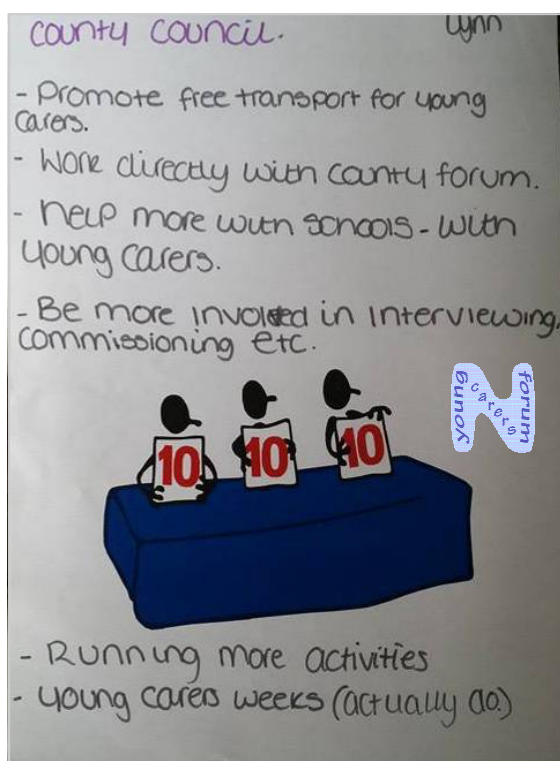 county council.
Lynn
- Promote free transport for young
carers.
- Work directly with county forum.
- Help more with schools - with
young carers.
- Be more involved in interviewing,
commissioning etc.
10 10 10
young carers forum
- Running more activities
- young carers weeks (actually do.)